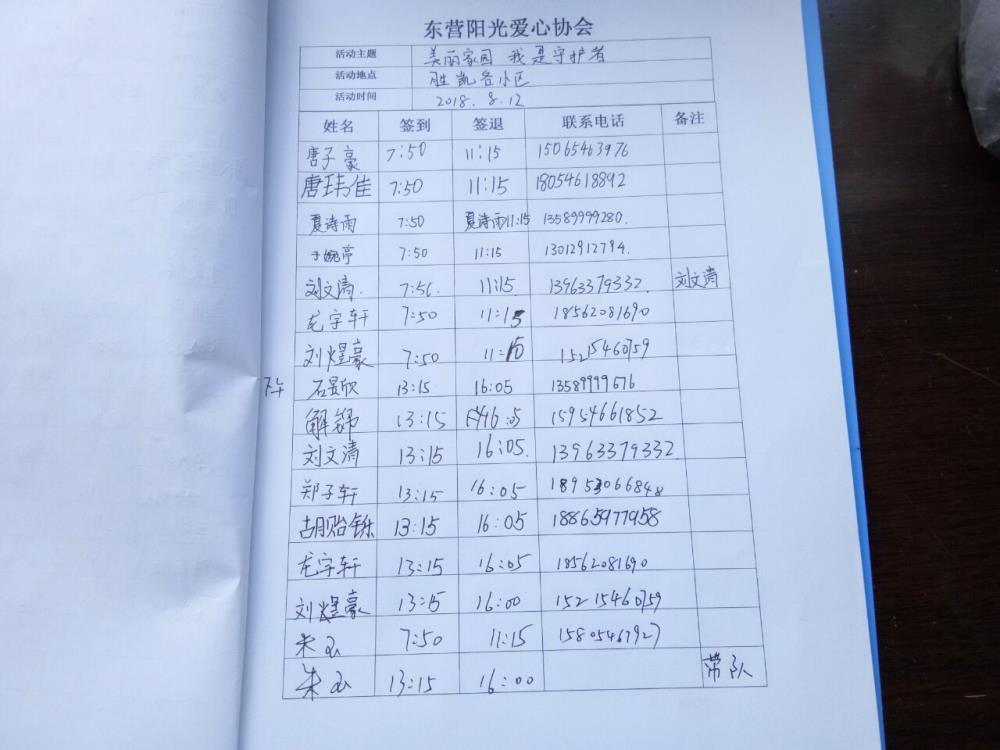 东营阳光爱心协会
活动主题 美丽家园 我是守护者
活动地点 胜凯各小区
活动时间 2018.8.12
姓名 签到 签退 联系电话 备注
唐子豪 7:50 11:15 15065463976
唐玮佳 7:50 11:15 18054618892
夏诗雨 7:50 夏诗雨11:15 13589999280.
于婉亭 7:50 11:15 13012912794.
刘文清. 7:56. 11:15 13963379332. 刘文清
龙宇轩 7:50 11:15 18562081690
刘煜豪 7:50 11:15 15215460759
下午 石昱欣 13:15 16:05 13589999676
解郑 13:15 16:05 15954661852
刘文清 13:15 16:05. 13963379332
郑子轩 13:15 16:05 18953066848
胡贻铄 13:15 16:05 18865977958
龙宇轩 13:15 16:05 18562081690
刘煜豪 13:15 16:00 15215460759
朱玉 7:50 11:15 15805467927
朱玉 13:15 16:00 带队